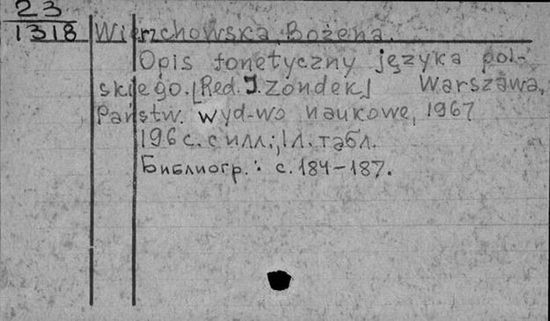 23
1318 Wierzchowska Bożena.
Opis fonetyczny języka pol-
skiego. [Red. J. Zondek] Warszawa,
Państw. wyd-wo naukowe, 1967
196 с. с илл.; 1 л. табл.
Библиогр.: с. 184-187.